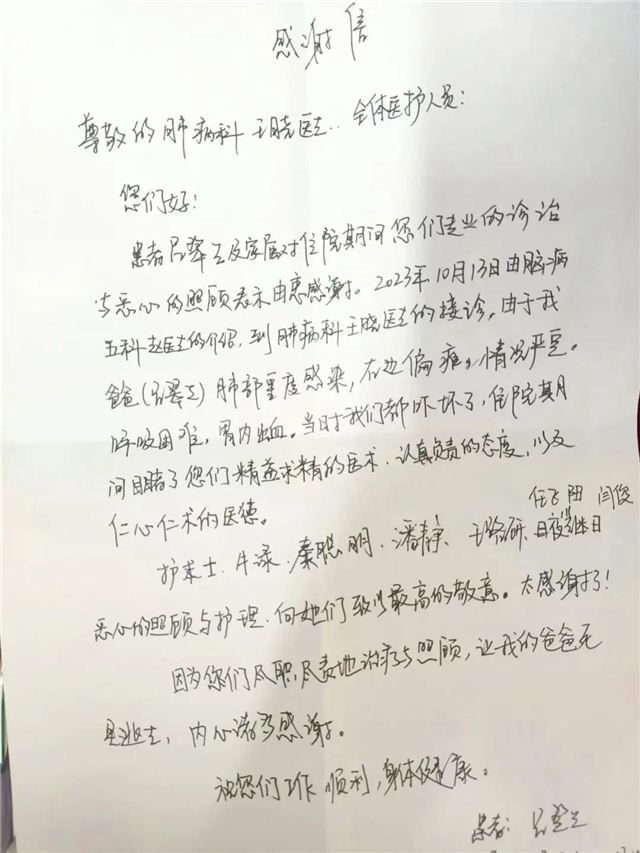 感谢信
尊敬的肺病科王晓医生、全体医护人员：
您们好！
患者吕翠兰及家属对住院期间您们专业的诊治
与悉心的照顾表示由衷感谢。2023年10月13日由脑病
五科赵医生的介绍，到肺病科王晓医生的接诊。由于我
爸爸(吕翠兰)肺部重度感染，右边偏瘫，情况严重。
呼吸困难，胃内出血。当时我们都吓坏了，住院期
间目睹了您们精益求精的医术，认真负责的态度，以及
仁心仁术的医德。
任飞阳 闫俊
护士 牛渌、秦聪明、潘静、日夜继日
悉心的照顾与护理，向她们致以最高的敬意。太感谢了！
因为您们尽职，尽责地治疗与照顾，让我的爸爸死
里逃生，内心激动感谢。
祝您们工作顺利，身体健康。
患者：吕翠兰